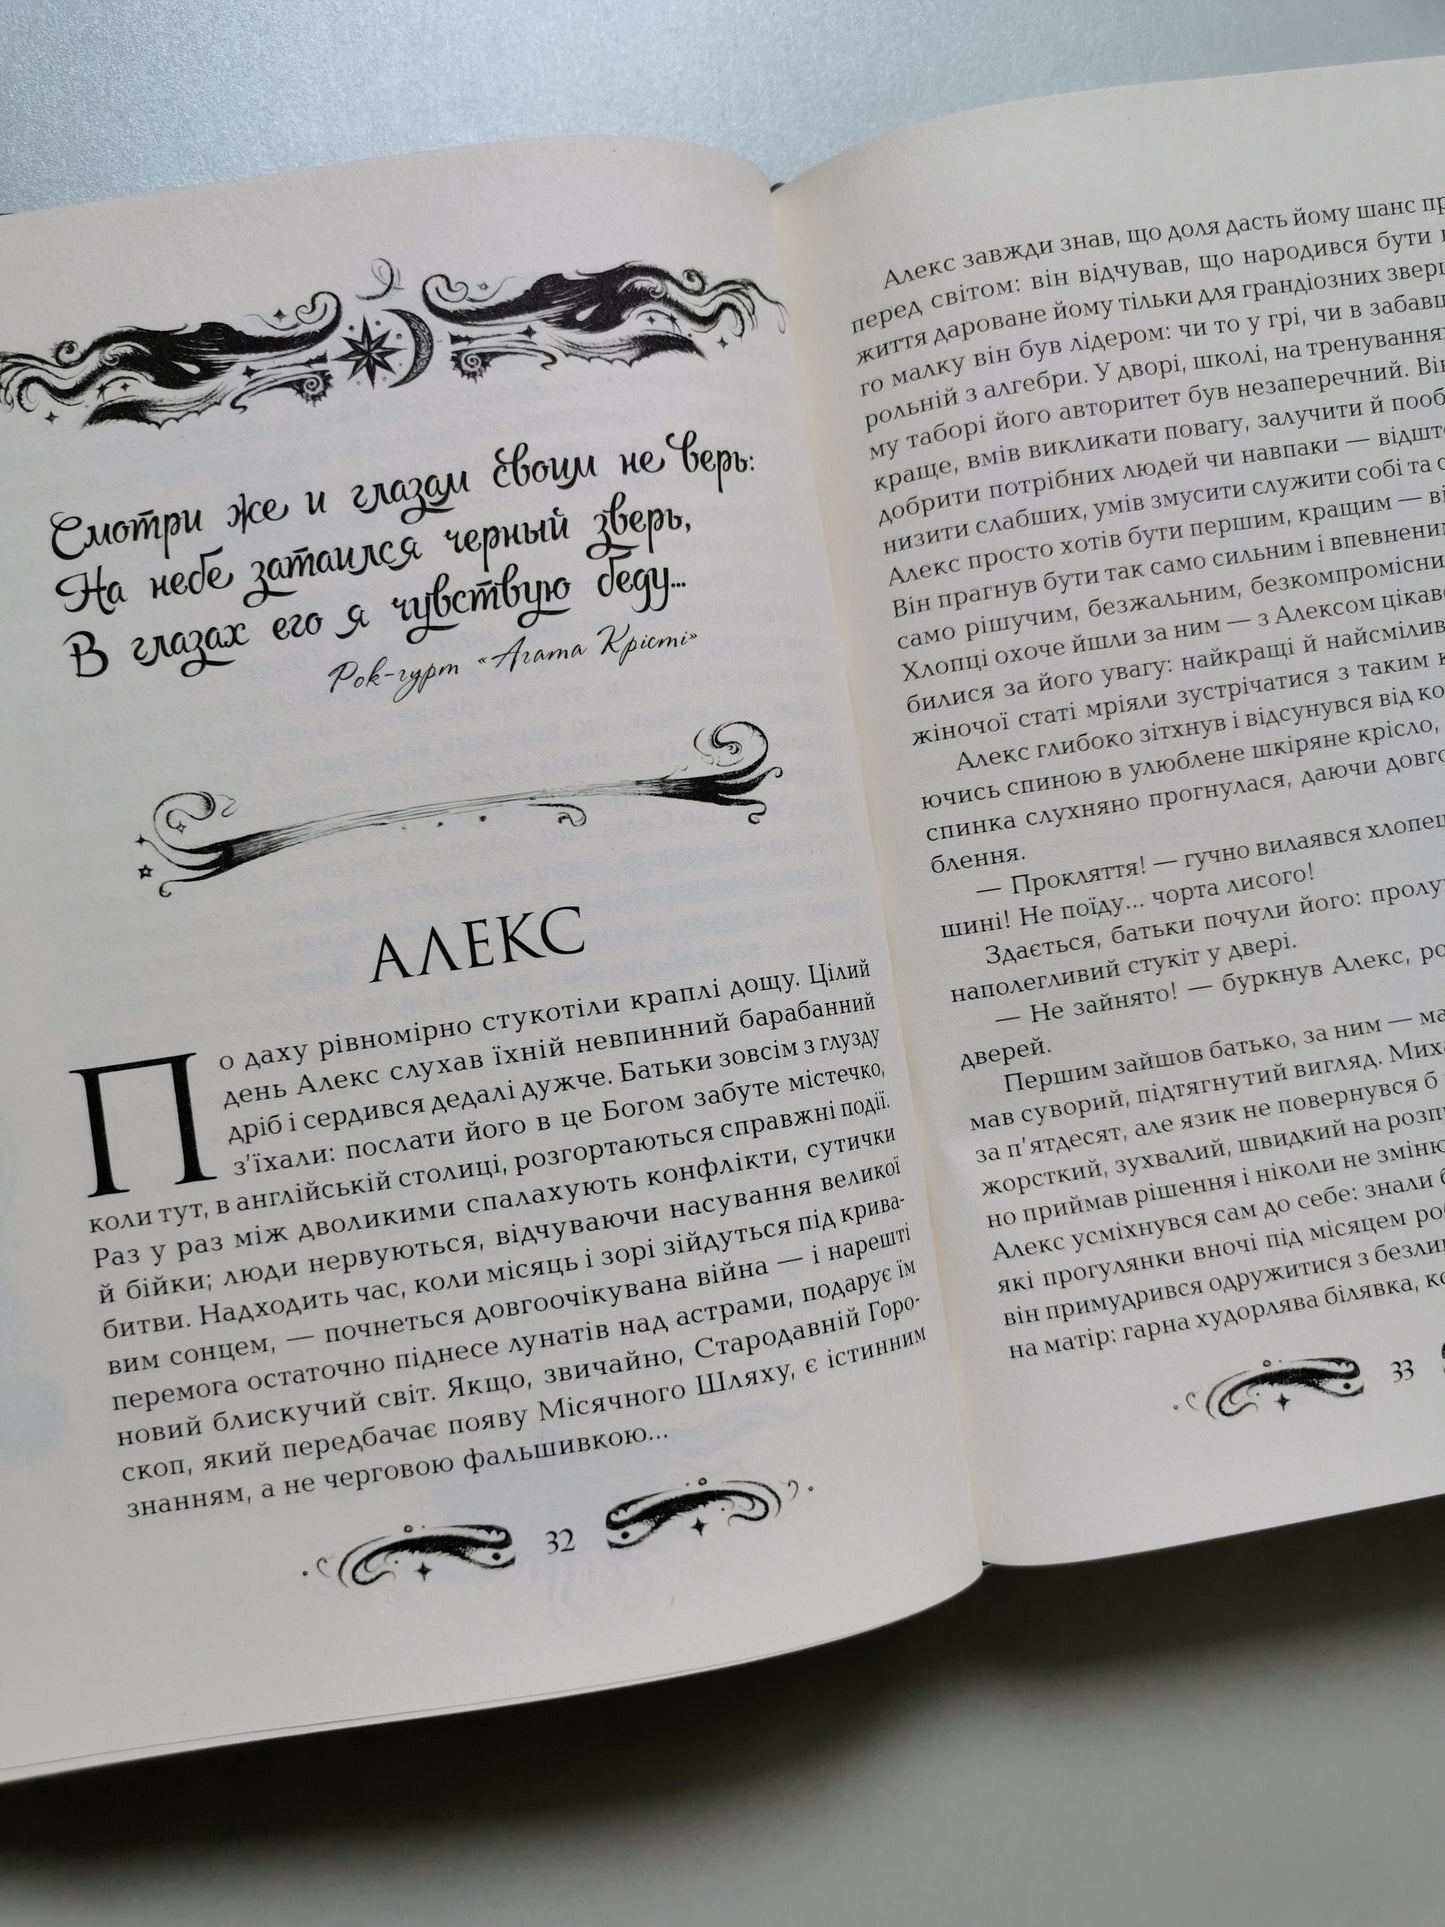 Смотри же и глазам своим не верь:
На небе затаился черный зверь,
В глазах его я чувствую беду...
Рок-гурт «Агата Крісті»
АЛЕКС
По даху рівномірно стукотіли краплі дощу. Цілий
день Алекс слухав їхній невпинний барабанний
дріб і сердився дедалі дужче. Батьки зовсім з глузду
з’їхали: послати його в це Богом забуте містечко,
коли тут, в англійській столиці, розгортаються справжні події.
Раз у раз між дволикими спалахують конфлікти, сутички
й бійки; люди нервуються, відчуваючи насування великої
битви. Надходить час, коли місяць і зорі зійдуться під крива-
вим сонцем, — почнеться довгоочікувана війна — і нарешті
перемога остаточно піднесе лунатів над астрами, подарує їм
новий блискучий світ. Якщо, звичайно, Стародавній Горо-
скоп, який передбачає появу Місячного Шляху, є істинним
знанням, а не черговою фальшивкою...
32
Алекс завжди знав, що доля дасть йому шанс
перед світом: він відчував, що народився бути
життя дароване йому тільки для грандіозних
го малку він був лідером: чи то у грі, чи в
рольній з алгебри. У дворі, школі, на тренуваннях
му таборі його авторитет був незаперечний. Він
краще, вмів викликати повагу, залучити й
добрити потрібних людей чи навпаки —
низити слабших, умів змусити служити собі та
Алекс просто хотів бути першим, кращим —
Він прагнув бути так само сильним і впевненим
само рішучим, безжальним,
Хлопці охоче йшли за ним — з Алексом
билися за його увагу: найкращі й
жіночої статі мріяли зустрічатися з таким
Алекс глибоко зітхнув і відсунувся від
ючись спиною в улюблене шкіряне крісло,
спинка слухняно прогнулася, даючи
блення.
— Прокляття! — гучно вилаявся хлопець
шині! Не поїду... чорта лисого!
Здається, батьки почули його:
наполегливий стукіт у двері.
— Не зайнято! — буркнув Алекс,
дверей.
Першим зайшов батько, за ним —
мав суворий, підтягнутий вигляд.
за п’ятдесят, але язик не повернувся б
жорсткий, зухвалий, швидкий на
но приймав рішення і ніколи не
Алекс усміхнувся сам до себе: знали
які прогулянки вночі під місяцем
він примудрився одружитися з
на матір: гарна худорлява білявка,
33